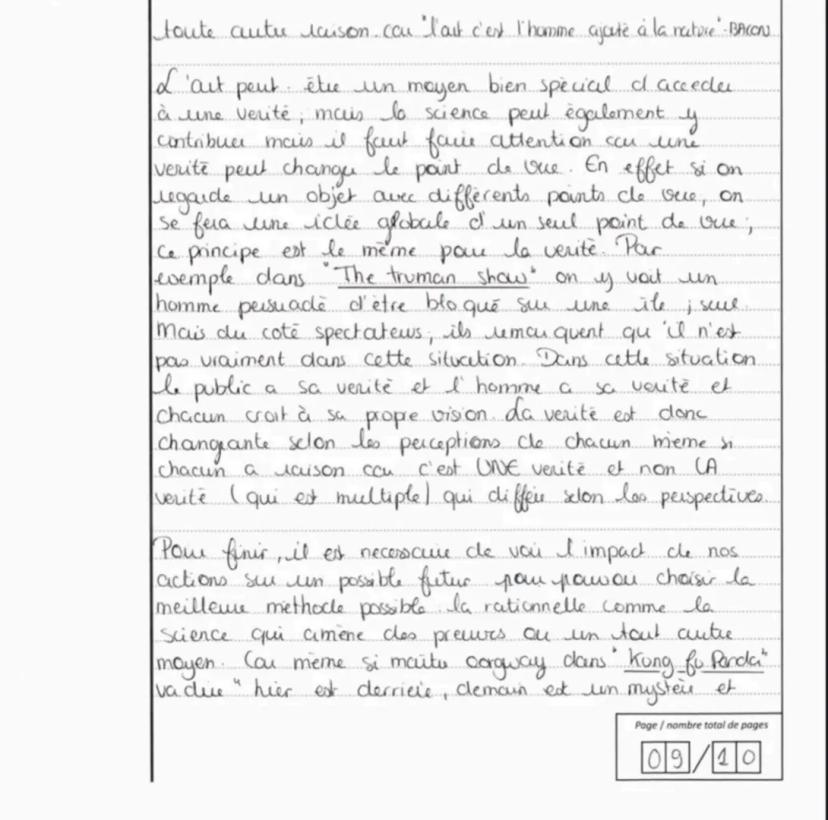 toute autre raison. car "l'art c'est l'homme ajouté à la nature" - BACON
L'art peut être un moyen bien spécial d'acceder
à une verité, mais la science peut également y
contribuer mais il faut faire attention car une
verité peut changer le point de vue. En effet si on
regarde un objet avec différents points de vue, on
se fera une idée globale d'un seul point de vue,
ce principe est le même pour la verité. Par
exemple dans "The truman show" on y voit un
homme persuadé d'être bloqué sur une île, seul.
Mais du coté spectateurs, ils remarquent qu'il n'est
pas vraiment dans cette situation. Dans cette situation
le public a sa verité et l'homme a sa verité et
chacun croit à sa propre vision. La verité est donc
changeante selon les perceptions de chacun meme si
chacun a raison car c'est UNE verité et non LA
verité (qui est multiple) qui differe selon les perspectives.
Pour finir, il est necessaire de voir l'impact de nos
actions sur un possible futur pour pouvoir choisir la
meilleure méthode possible. la rationnelle comme la
science qui amène des preuves ou un tout autre
moyen. Car même si maitre oogway dans "Kung fu Panda"
va dire "hier est derriere, demain est un mystère et
Page / nombre total de pages
09/10